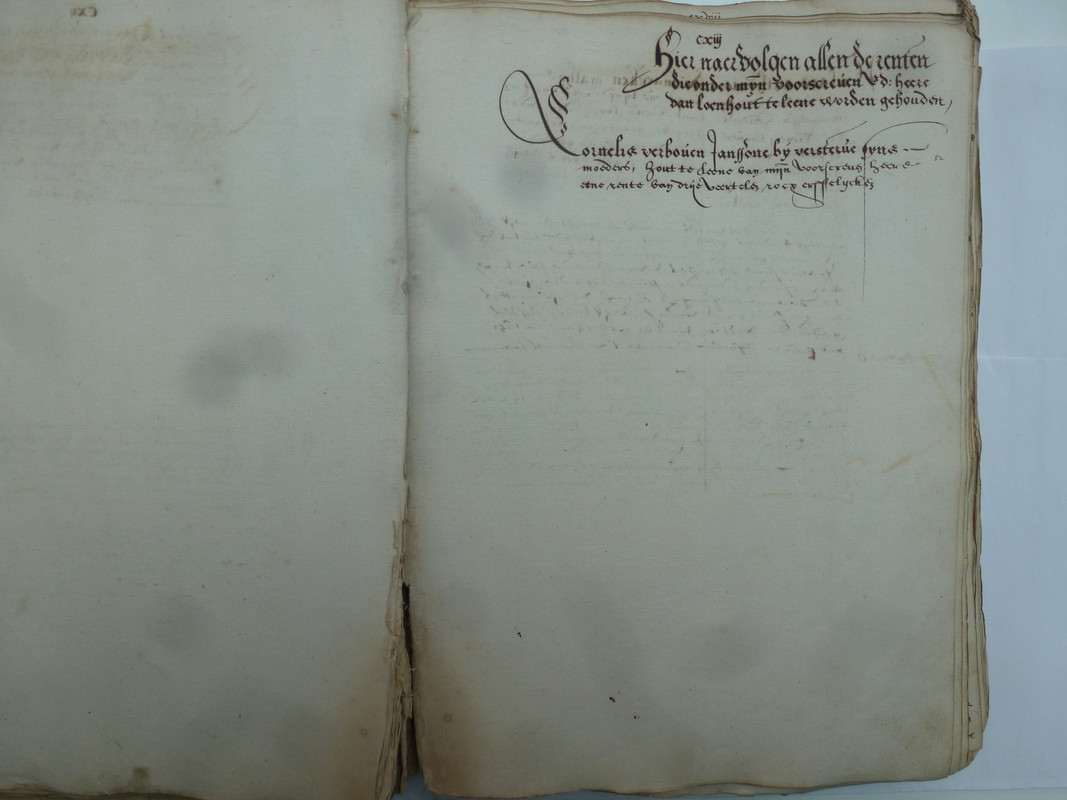 cxiij
Hier naer volgen allen de renten
die onder mijn voorscreuen Ed: heere
van loenhout te leene worden gehouden,
Cornelis verbouen Janssone by versterue syns
moeders, hout te leene van mijn voorscreuen heere
eene rente van drije veertelen rocx erffelycken